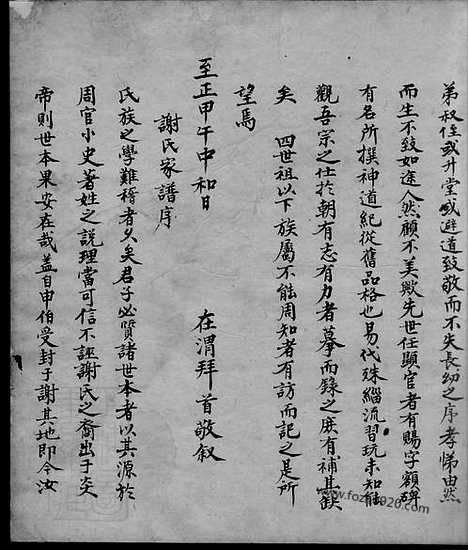 弟叔侄或升堂或避道致敬而不失長幼之序孝悌由然
而生不致如途人然顧不美歟先世任顯官者有賜字額碑
有名所撰神道紀從舊品格也易代殊緇流習玩未知能
觀吾宗之仕於朝有志有力者摹而錄之庶有補其缺
矣 四世祖以下族屬不能周知者有訪而記之是所
望焉
至正甲午中和日 在渭拜首敬叙
謝氏家譜序
氏族之學難稽者久矣君子必質諸世本者以其源於
周官小史著姓之説理當可信不誣謝氏之裔出于炎
帝則世本果安在哉盖自申伯受封于謝其地即今汝
www.fozhu920.com